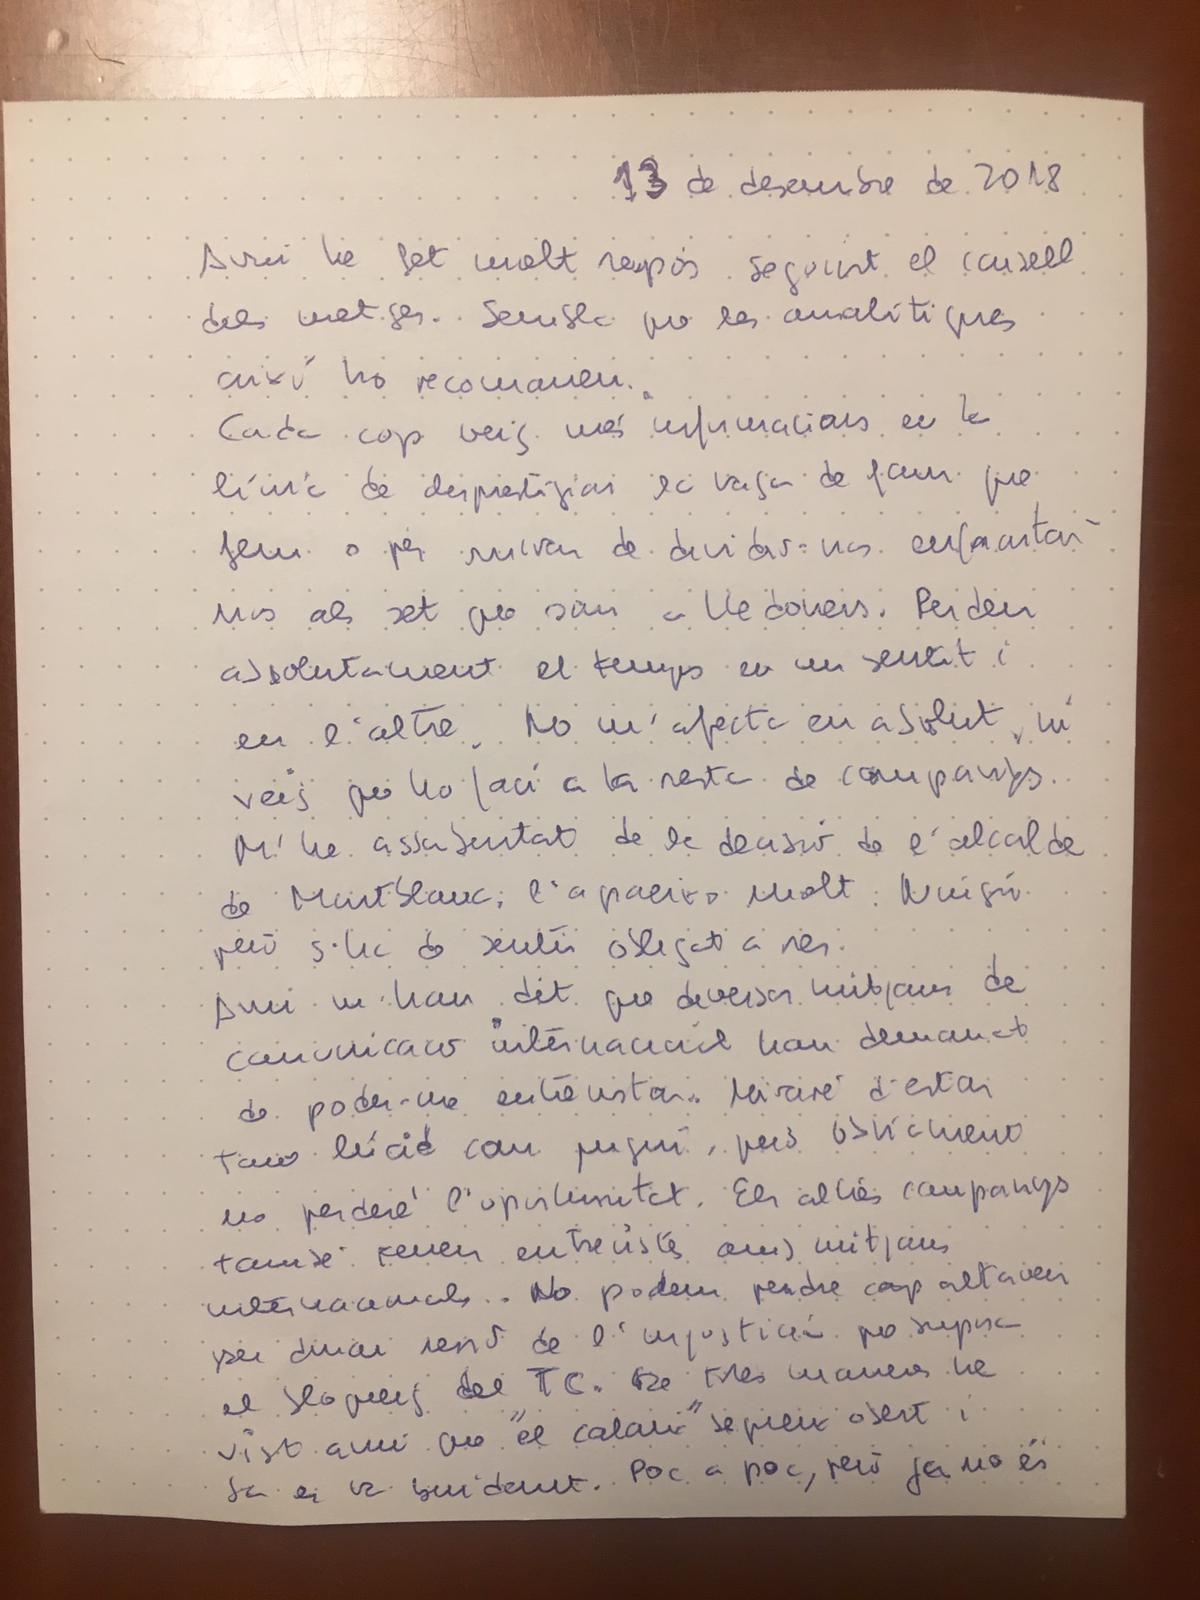 13 de desembre de 2018
Avui he fet molt repòs seguint el consell
dels metges. Sembla que les analítiques
així ho recomanen.
Cada cop veig més informacions en la
línia de desprestigiar la vaga de fam que
fem o per mirar de dividir-nos enfrontant
nos als set que són a Lledoners. Perden
absolutament el temps en un sentit i
en l'altre. No m'afecta en absolut, ni
veig que ho faci a la resta de companys.
M'he assabentat de la decisió de l'alcalde
de Montblanc, l'agraeixo molt. Ningú
però s'ha de sentir obligat a res.
Avui m'han dit que diversos mitjans de
comunicació internacional han demanat
de poder-me entrevistar. Miraré d'estar
tant lúcid com pugui, però òbviament
no perdré l'oportunitat. Els altres companys
també tenen entrevistes amb mitjans
internacionals. No podem perdre cap altaveu
per donar veu de l'injustícia que suposa
el bloqueig del TC. De totes maneres he
vist avui que "el calaix" segueix obert i
ja es va buidant. Poc a poc, però ja no és